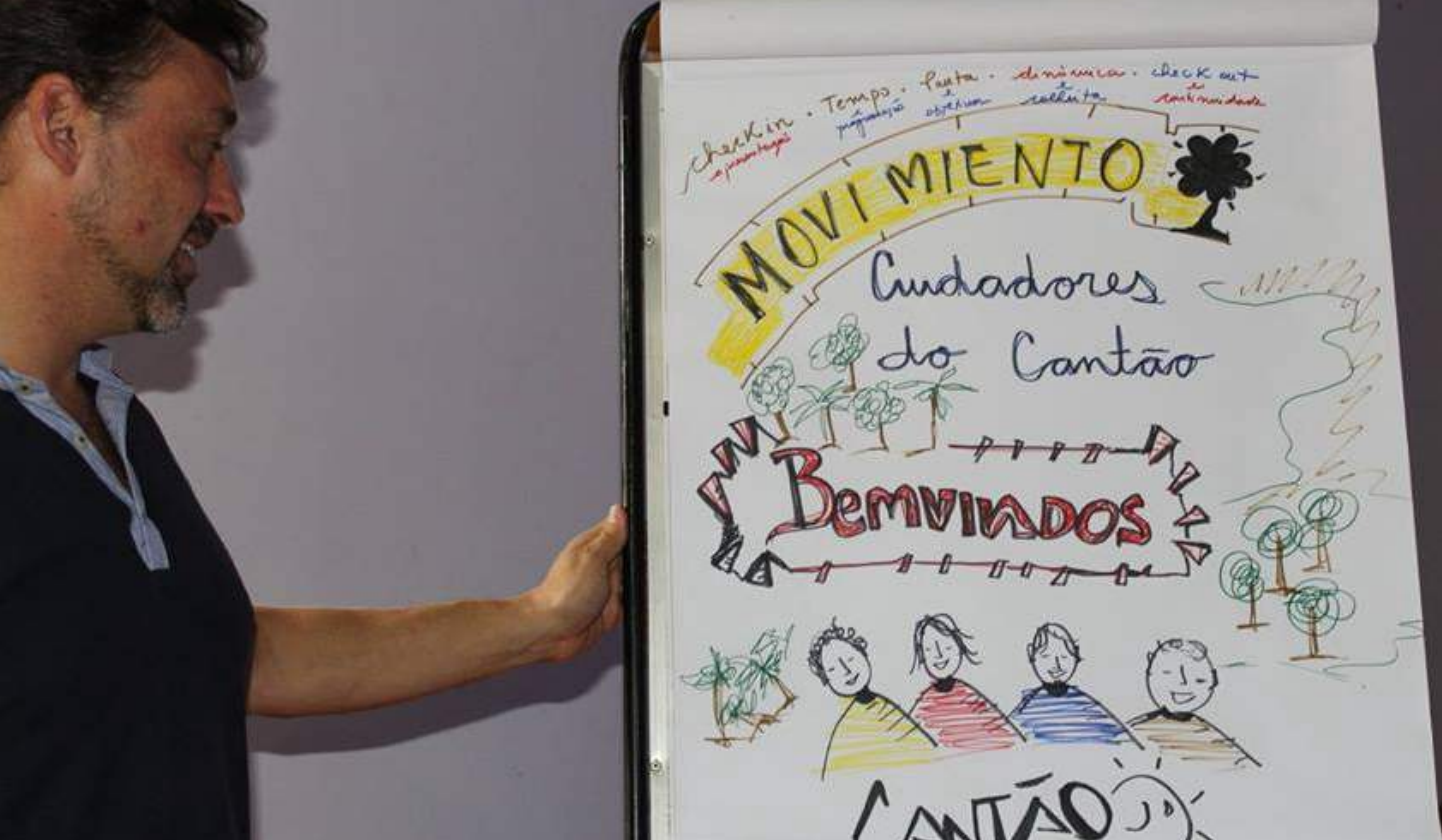 check in . Tempo . Pauta . dinâmica . check out
apresentação e programação e objetivos e colheita e continuidade
MOVIMIENTO
Cuidadores
do Cantão
BEMVINDOS
CANTÃO